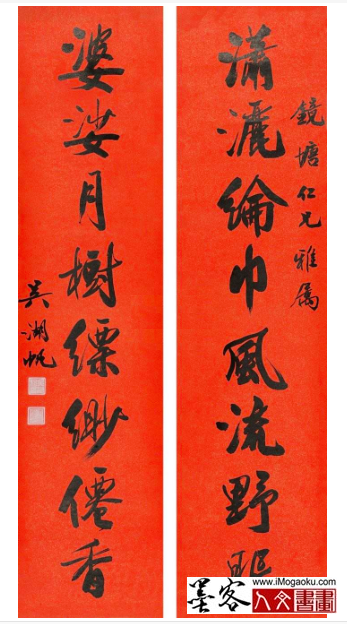 鏡塘仁兄雅属
瀟灑綸巾風流野
婆娑月樹縹緲僊香
吳湖帆
www.iMogaoku.com
墨客
人文書畫